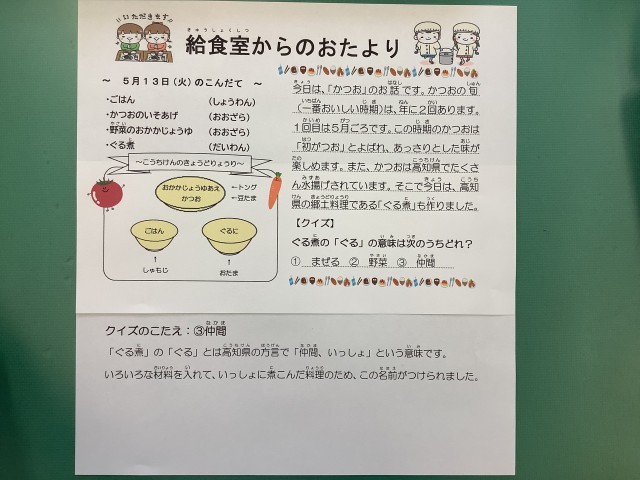 いただきます!!
給食室からのおたより
きゅうしょくしつ
～ 5月13日(火)のこんだて ～
・ごはん (しょうわん)
・かつおのいそあげ (おおざら)
・野菜のおかかじょうゆ (おおざら)
・ぐる煮 (だいわん)
～こうちけんのきょうどりょうり～
おかかじょうゆあえ ←トング
かつお ←豆たま
ごはん ぐるに
↑ ↑
しゃもじ おたま
今日は、「かつお」のお話です。かつおの旬
(一番おいしい時期)は、年に2回あります。
1回目は5月ごろです。この時期のかつおは
「初がつお」とよばれ、あっさりとした味が
楽しめます。また、かつおは高知県でたくさ
ん水揚げされています。そこで今日は、高知
県の郷土料理である「ぐる煮」も作りました。
【クイズ】
ぐる煮の「ぐる」の意味は次のうちどれ?
① まぜる ② 野菜 ③ 仲間
クイズのこたえ:③仲間
「ぐる煮」の「ぐる」とは高知県の方言で「仲間、いっしょ」という意味です。
いろいろな材料を入れて、いっしょに煮こんだ料理のため、この名前がつけられました。